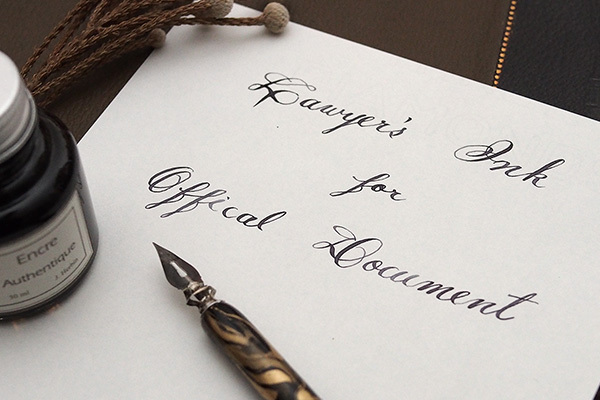 Lawyer's Ink
for
Offical Document
Encre
Authentique
J. Herbin
30 ml